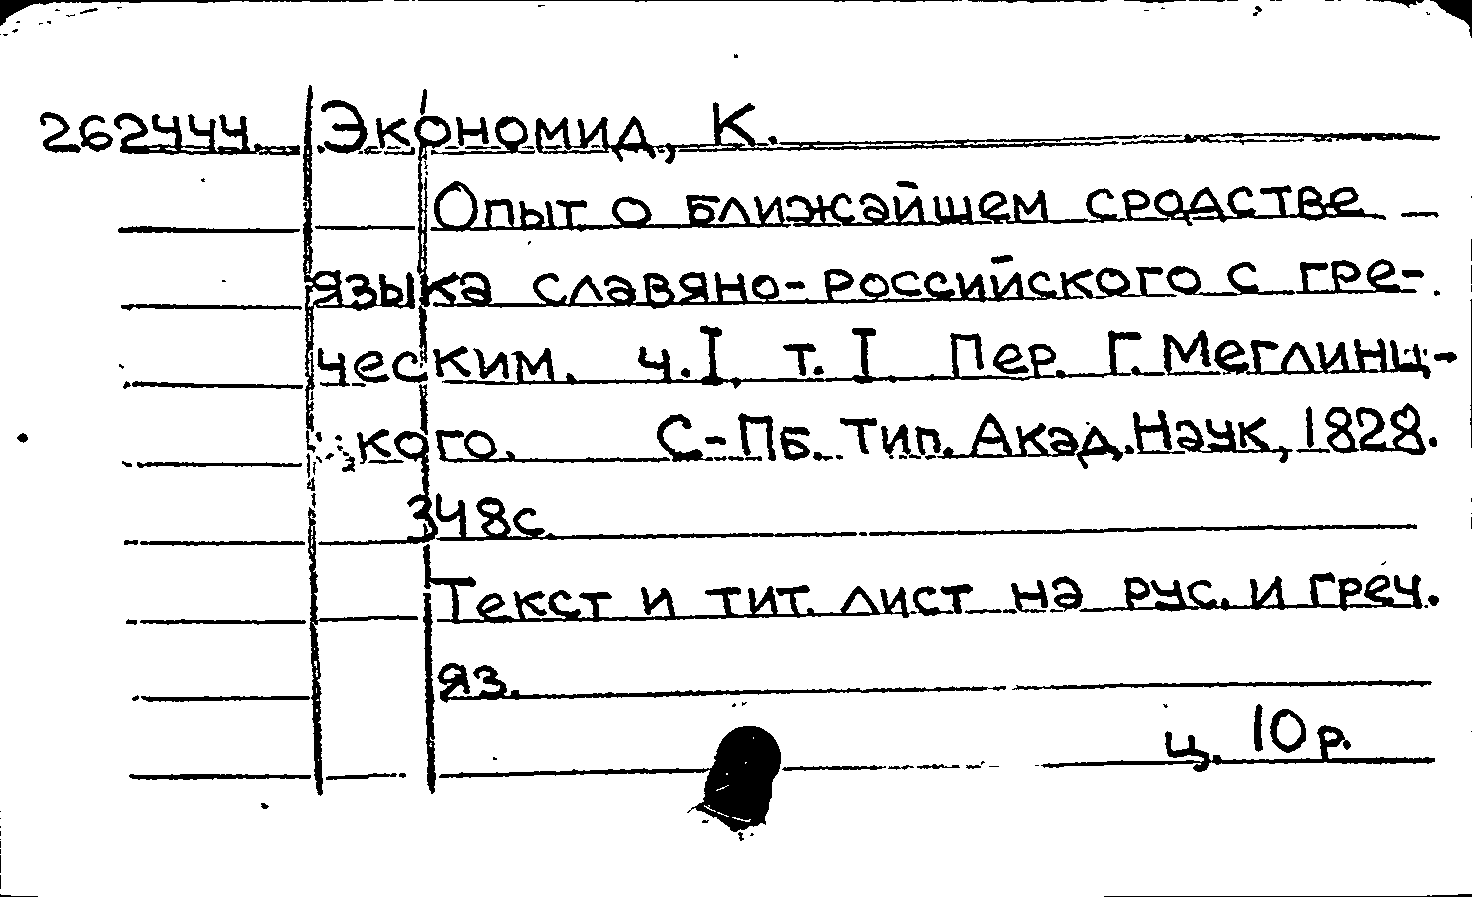 262444. Экономид, К.
Опыт о ближайшем сродстве
языка славяно-российского с гре-
ческим. ч.I, т. I. Пер. Г. Меглинц-
кого. С-Пб. Тип. Акад. Наук, 1828.
348с.
Текст и тит. лист на рус. и греч.
яз.
ц. 10 р.